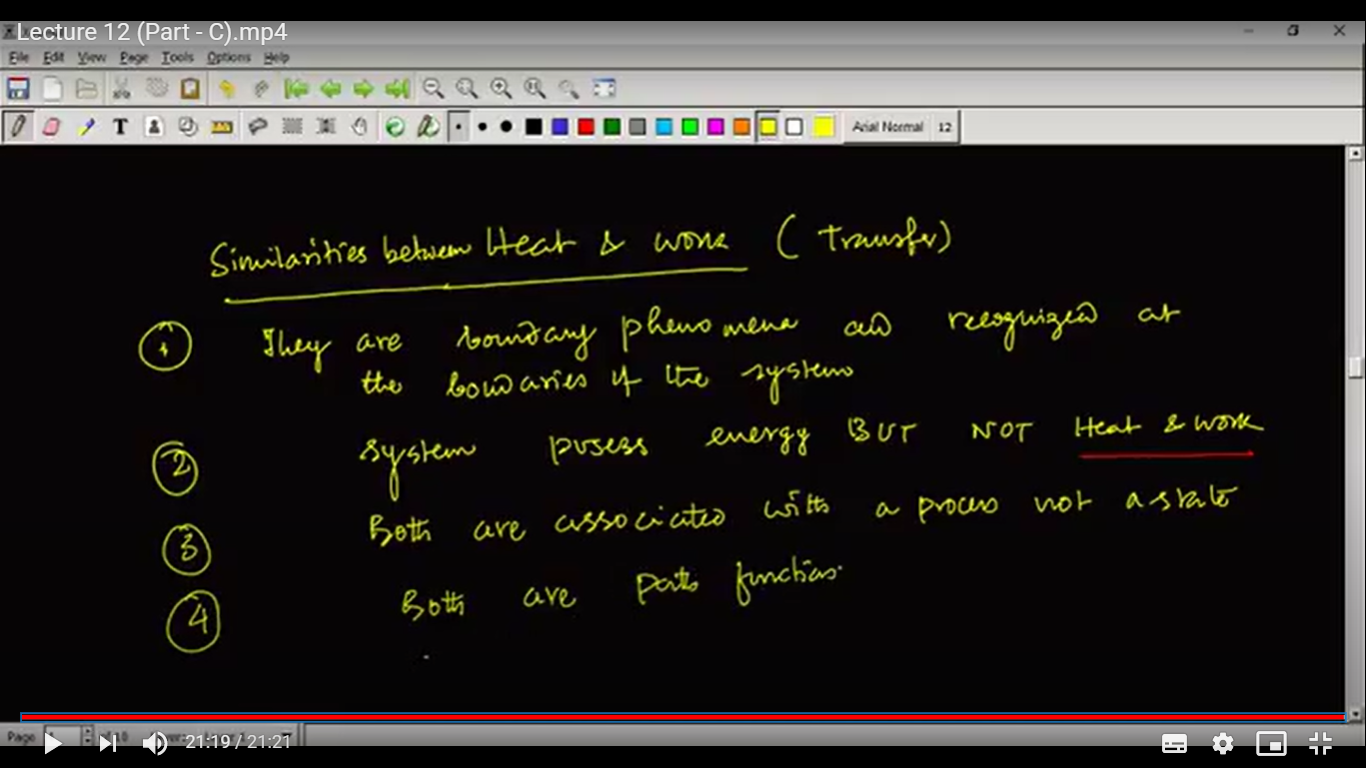 Lecture 12 (Part - C).mp4
File Edit View Page Tools Options Help
Arial Normal 12
Similarities between Heat & work (Transfer)
1 They are boundary phenomena and recognized at
the boundaries of the system
2 System posess energy BUT NOT Heat & work
3 Both are associated with a process not a state
4 Both are path functions.
Page
21:19 / 21:21